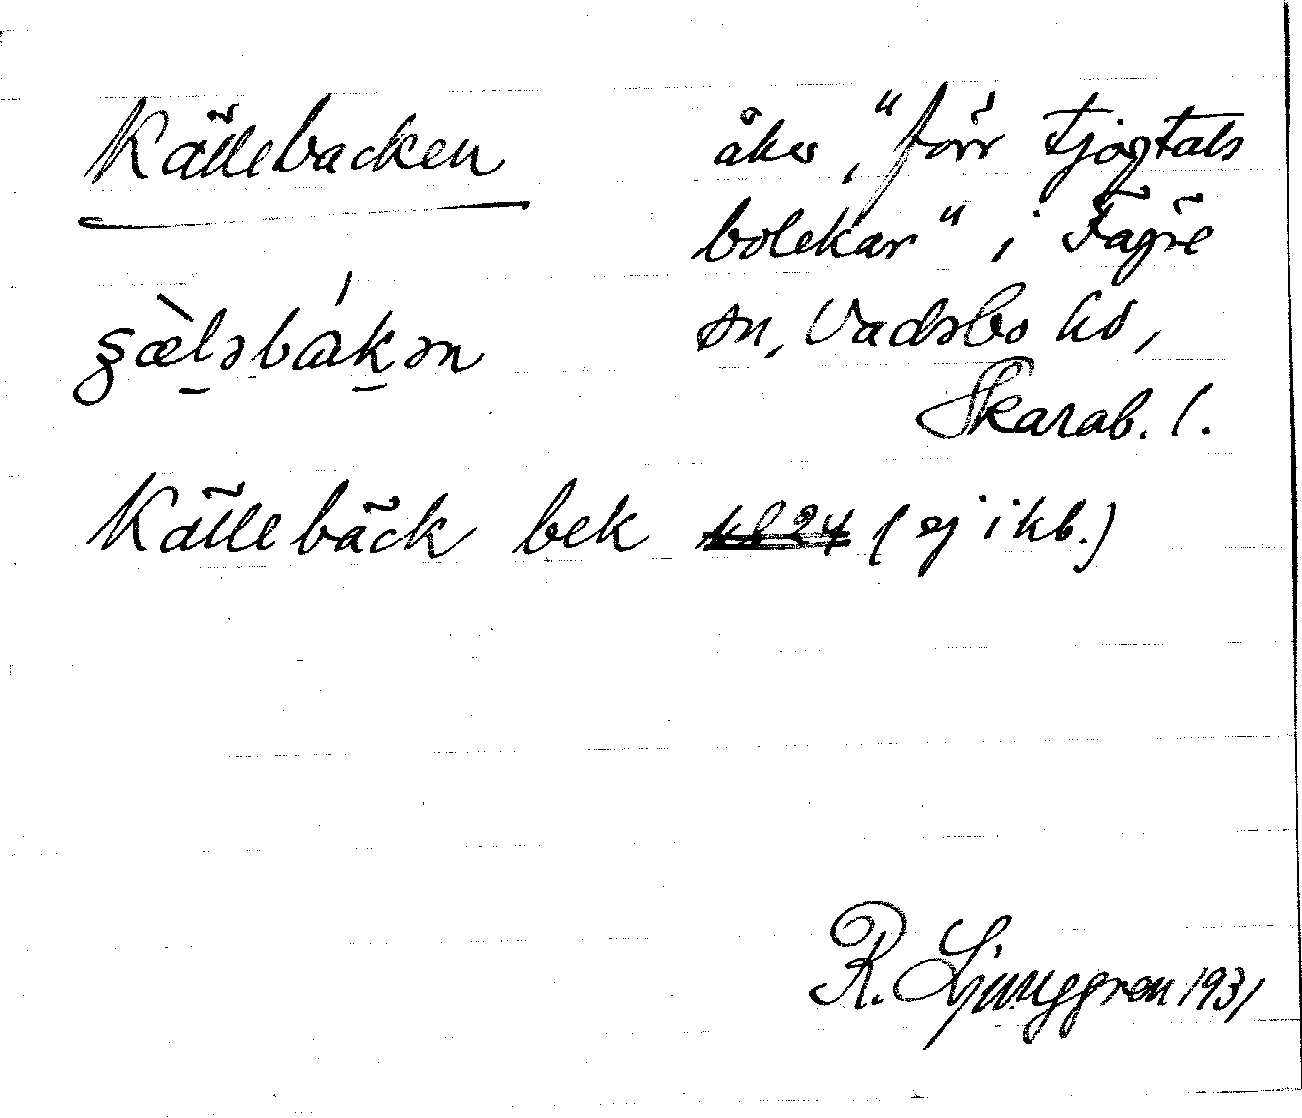 Källebacken
åker, "förr tjogtals
bolekar" i Fägre
sn, Vadsbo hd,
Skarab. l.
Källebäck bek (ej i kb.)
R. Ljunggren 1931